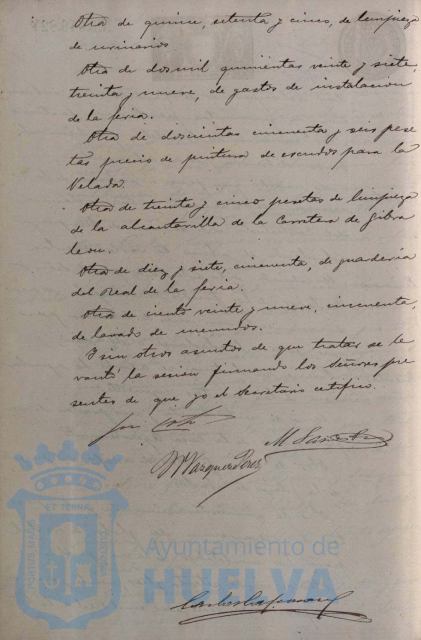 Otra de quince, setenta y cinco, de limpieza
de urinarios
Otra de dos mil quinientas veinte y siete,
treinta y nueve, de gastos de instalacion
de la feria.
Otra de doscientas cincuenta y seis pese
tas precio de pintura de escudos para la
Velada.
Otra de treinta y cinco pesetas de limpieza
de la alcantarilla de la Carretera de Gibra
leon.
Otra de diez y siete, cincuenta, de guarderia
del Real de la feria.
Otra de ciento veinte y nueve, cincuenta,
de lavado de menudos.
I sin otros asuntos de que tratar se le
vantó la sesión firmando los Señores pre
sentes de que yo el Secretario certifico.
Vazquez Perez
PORTUS MARIS
ET TERRÆ
CUSTODIA
Ayuntamiento de
HUELVA